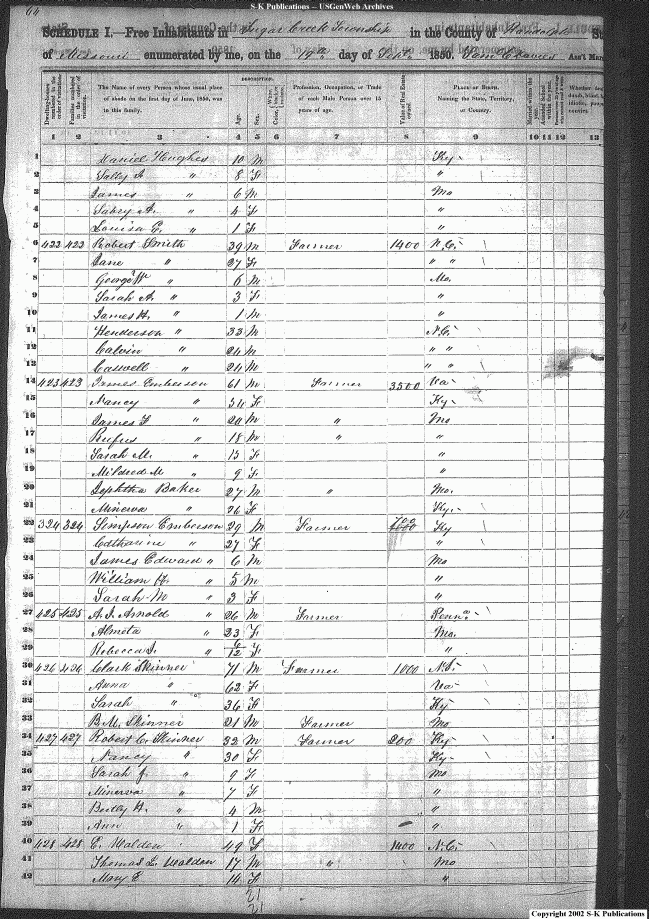 S-K Publications – USGenWeb Archives
64
SCHEDULE I.—Free Inhabitants in Sugar Creek Township in the County of Randolph
of Missouri enumerated by me, on the 14th day of Sept. 1850. Ass't Mar
DESCRIPTION.
Dwelling-houses numbered in the order of visitation. Families numbered in the order of visitation. The Name of every Person whose usual place of abode on the first day of June, 1850, was in this family. Age. Sex. Color, Profession, Occupation, or Trade of each Male Person over 15 years of age. Value of Real Estate owned. PLACE OF BIRTH. Naming the State, Territory, or Country. Married within the
1 2 3 4 5 6 7 8 9 10 11 12 13
1 Daniel Hughes 10 M Ky
2 Sally A " 8 F "
3 James " 6 M Mo
4 " 4 F "
5 Louisa G. " 1 F "
6 422 423 Robert Smith 39 M Farmer 1400 N.C.
7 Jane " 27 F " "
8 George W " 6 M Mo.
9 Sarah A. " 3 F "
10 James H. " 1 M "
11 Henderson " 33 M N.C.
12 Calvin " 24 M " "
13 Caswell " 24 M " "
14 423 423 James Emberson 61 M Farmer 3500 Va
15 Nancy " 54 F Ky
16 James F " 20 M " Mo
17 Rufus " 18 M " "
18 Sarah M. " 13 F "
19 Mildred M " 9 F "
20 Jephtha Baker 27 M " Mo.
21 Minerva " 26 F Ky.
22 324 324 Simpson Emberson 29 M Farmer Ky
23 Catharine " 27 F "
24 James Edward " 6 M Mo
25 William " 5 M "
26 Sarah M " 3 F "
27 425 425 A. J. Arnold " 26 M Farmer Penna
28 Almeta " 23 F Mo.
29 Rebecca J. " 6/12 F "
30 426 426 Clark Skinner 71 M Farmer 1000
31 Anna " 62 F Va
32 Sarah " 36 F Ky
33 B. M. Skinner 21 M Farmer Mo
34 427 427 Robert C. Skinner 32 M Farmer 200 Ky
35 Nancy " 30 F Ky
36 Sarah J. " 9 F Mo
37 Minerva " 7 F "
38 " 4 M "
39 Ann " 1 F "
40 428 428 E. Walden 49 F 1400 N.C.
41 Thomas L. Walden 17 M " Mo
42 Mary E 14 F "
21
21
Copyright 2002 S-K Publications